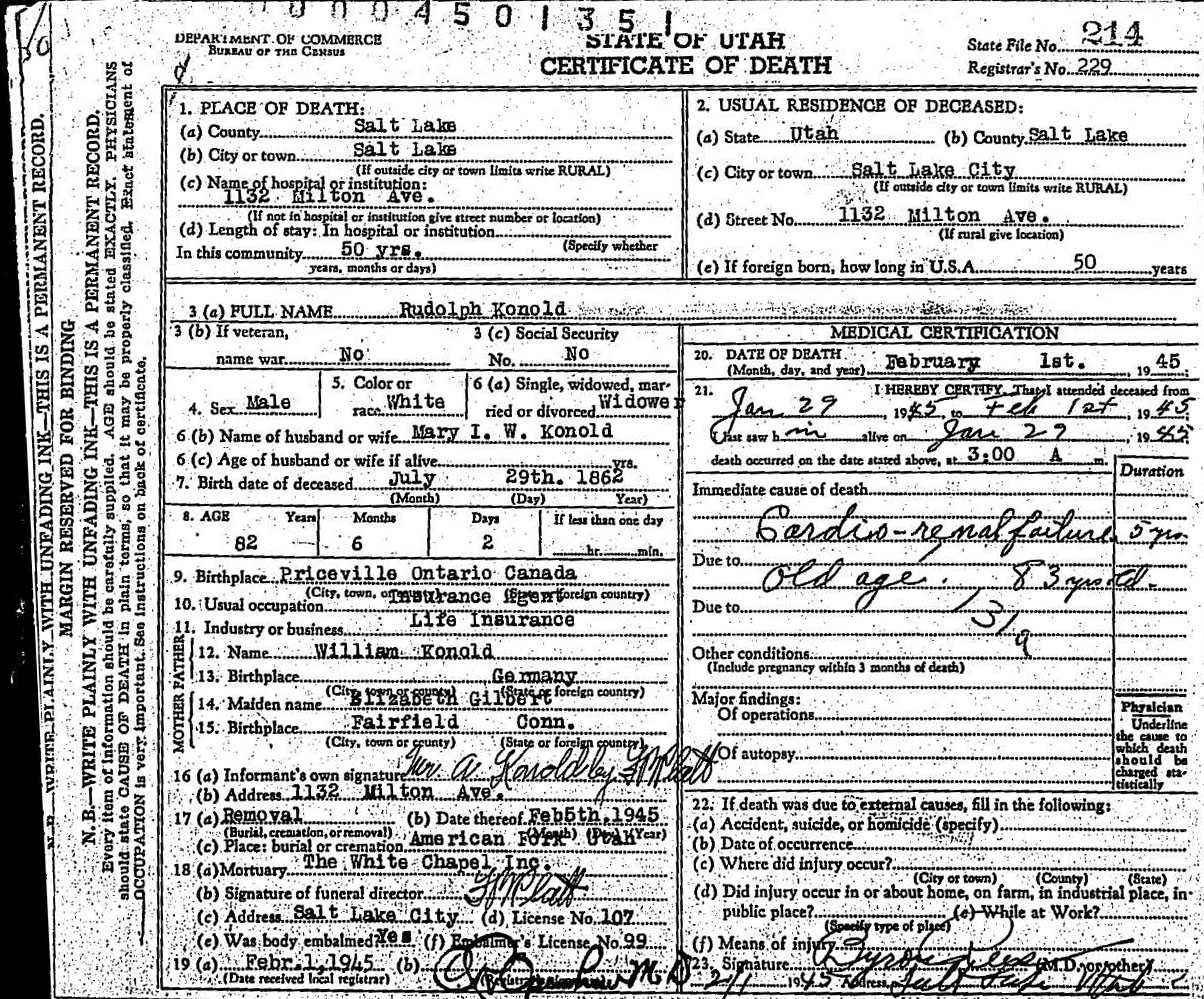 0004501351
DEPARTMENT OF COMMERCE
BUREAU OF THE CENSUS
STATE OF UTAH
CERTIFICATE OF DEATH
State File No. 214
Registrar's No. 229
N. B.—WRITE PLAINLY WITH UNFADING INK—THIS IS A PERMANENT RECORD.
MARGIN RESERVED FOR BINDING
N. B.—WRITE PLAINLY WITH UNFADING INK—THIS IS A PERMANENT RECORD.
Every item of information should be carefully supplied. AGE should be stated EXACTLY. PHYSICIANS
should state CAUSE OF DEATH in plain terms, so that it may be properly classified. Exact statement of
OCCUPATION is very important. See instructions on back of certificate.
1. PLACE OF DEATH:
(a) County Salt Lake
(b) City or town Salt Lake
(If outside city or town limits write RURAL)
(c) Name of hospital or institution:
1132 Milton Ave.
(If not in hospital or institution give street number or location)
(d) Length of stay: In hospital or institution
(Specify whether
In this community 50 yrs.
years, months or days)
2. USUAL RESIDENCE OF DECEASED:
(a) State Utah (b) County Salt Lake
(c) City or town Salt Lake City
(If outside city or town limits write RURAL)
(d) Street No. 1132 Milton Ave.
(If rural give location)
(e) If foreign born, how long in U.S.A. 50 years
3 (a) FULL NAME Rudolph Konold
3 (b) If veteran,
name war No
3 (c) Social Security
No. No
4. Sex Male
5. Color or
race White
6 (a) Single, widowed, mar-
ried or divorced Widower
6 (b) Name of husband or wife Mary I. W. Konold
6 (c) Age of husband or wife if alive yrs.
7. Birth date of deceased July 29th. 1862
(Month) (Day) Year)
8. AGE Years Months Days If less than one day
82 6 2 hr. min.
9. Birthplace Priceville Ontario Canada
(City, town, or county) (State or foreign country)
10. Usual occupation Insurance Agent
11. Industry or business Life Insurance
FATHER
12. Name William Konold
13. Birthplace Germany
(City, town or county) (State or foreign country)
MOTHER
14. Maiden name Elizabeth Gilbert
15. Birthplace Fairfield Conn.
(City, town or county) (State or foreign country)
16 (a) Informant's own signature A Konold by
(b) Address 1132 Milton Ave.
17 (a) Removal (b) Date thereof Feb5th,1945
(Burial, cremation, or removal) (Month) (Day) (Year)
(c) Place: burial or cremation American Fork Utah
18 (a) Mortuary The White Chapel Inc.
(b) Signature of funeral director
(c) Address Salt Lake City (d) License No. 107
(e) Was body embalmed? Yes (f) Embalmer's License No. 99
19 (a) Febr.1,1945 (b) M D
(Date received local registrar)
MEDICAL CERTIFICATION
20. DATE OF DEATH February 1st. 1945
(Month, day, and year)
21. I HEREBY CERTIFY, That I attended deceased from
Jan 29, 1945, to Feb 1st, 1945
I last saw him alive on Jan 29, 1945
death occurred on the date stated above, at 3:00 A m.
Duration
Immediate cause of death
Cardio-renal failure 5 yrs
Due to Old age. 83 yrs old.
Due to
131a
Other conditions
(Include pregnancy within 3 months of death)
Major findings:
Of operations
Of autopsy
Physician
Underline
the cause to
which death
should be
charged sta-
tistically
22. If death was due to external causes, fill in the following:
(a) Accident, suicide, or homicide (specify)
(b) Date of occurrence
(c) Where did injury occur?
(City or town) (County) (State)
(d) Did injury occur in or about home, on farm, in industrial place, in
public place? (e) While at Work?
(Specify type of place)
(f) Means of injury
23. Signature Byron Rees (M.D. or other)
2/1 1945 Address Salt Lake Utah